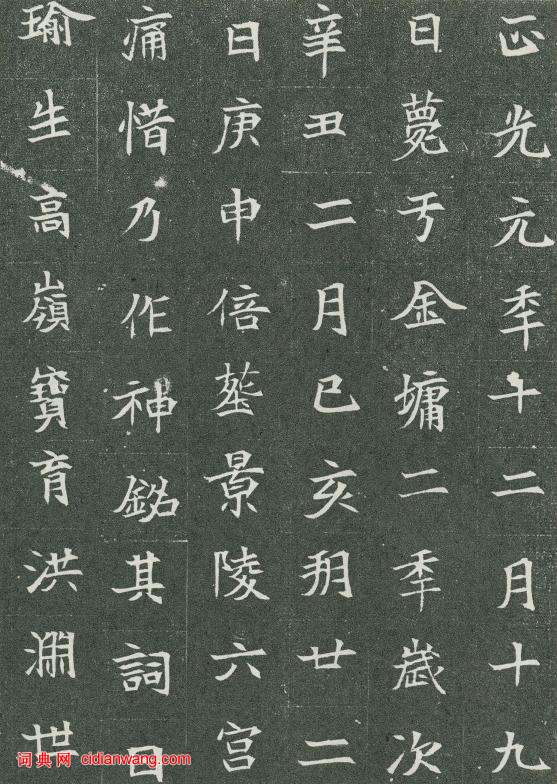 正光元年十二月十九
日薨于金墉二年歲次
辛丑二月己亥朔廿二
日庚申倍塟景陵六宮
痛惜乃作神銘其詞曰
瑜生高嶺寶育洪淵世
词典网 cidianwang.com